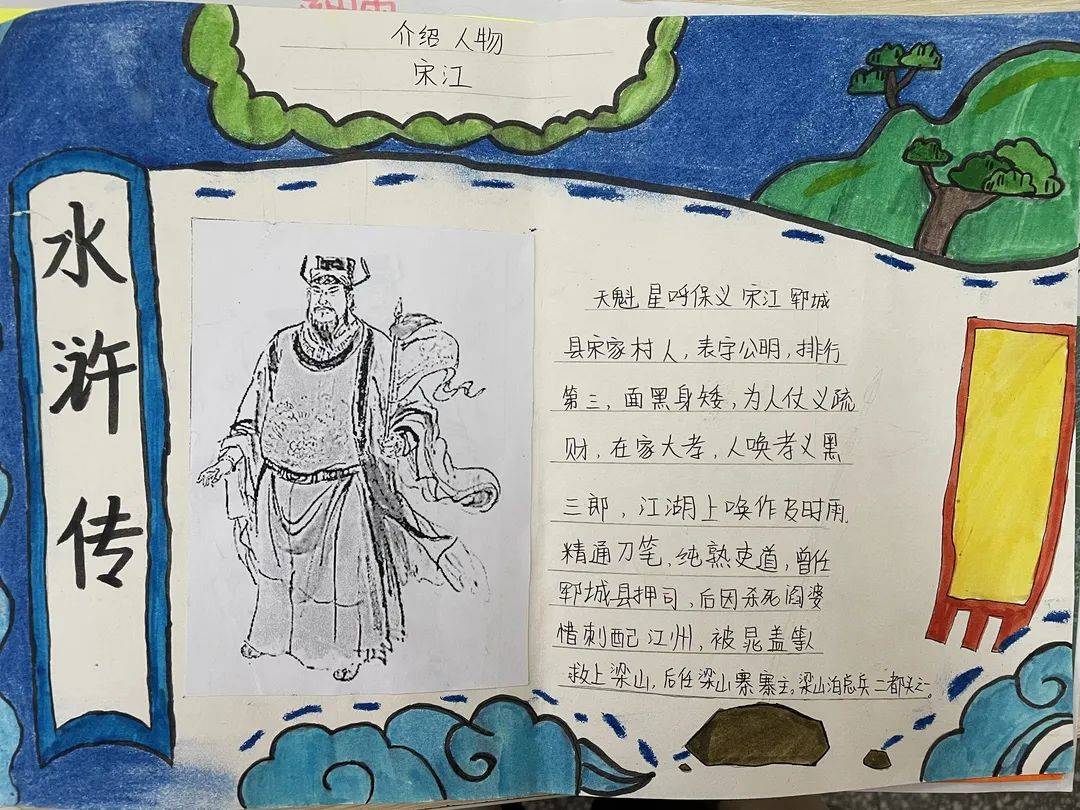 介绍人物
宋江
水浒传
天魁星呼保义宋江郓城
县宋家村人,表字公明,排行
第三,面黑身矮,为人仗义疏
财,在家大孝,人唤孝义黑
三郎,江湖上唤作及时雨.
精通刀笔,纯熟吏道,曾任
郓城县押司,后因杀死阎婆
惜刺配江州,被晁盖等人
救上梁山,后任梁山寨寨主,梁山泊总兵二都头之一。